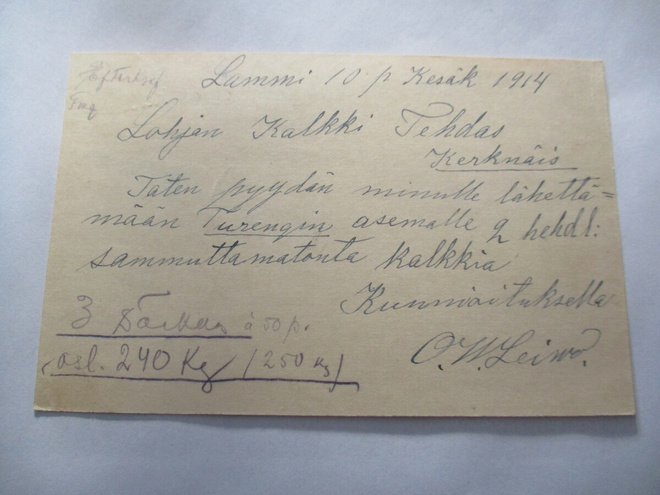 Lammi 10 p Kesäk 1914
Lohjan Kalkki Tehdas
Kerknäis
Täten pyydän minulle lähettä=
mään Turengin asemalle 2 hehdl:
sammuttamatonta kalkkia
Kunnioituksella
O.W.Leino.
3 à 50 p.
osl. 240 Kg (250 kg)